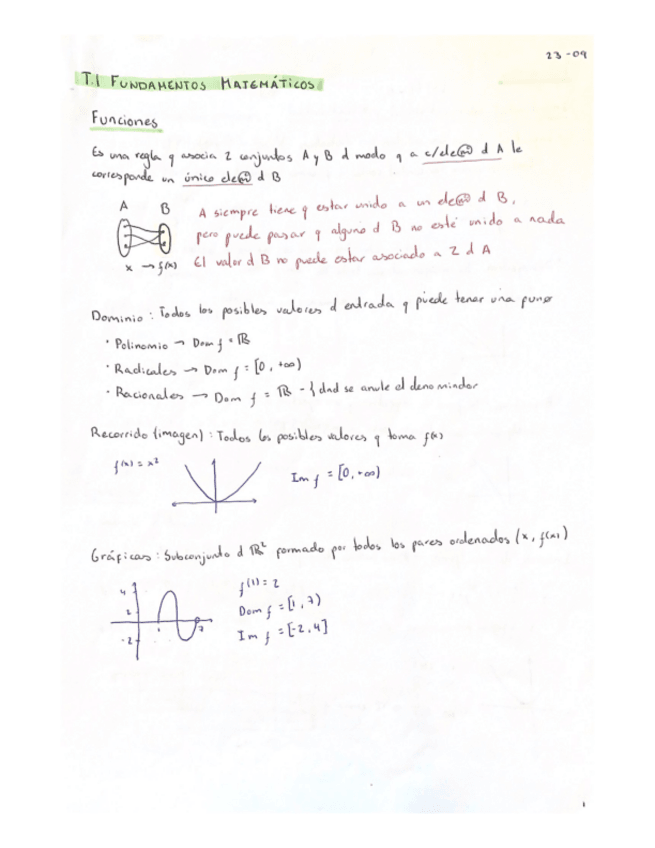 23-09
T.1 FUNDAMENTOS MATEMÁTICOS
Funciones
Es una regla q asocia 2 conjuntos A y B d modo q a c/ele@ d A le
corresponde un único ele@ d B
A B
A siempre tiene q estar unido a un ele@ d B,
pero puede pasar q alguno d B no esté unido a nada
x → f(x) El valor d B no puede estar asociado a 2 d A
Dominio: Todos los posibles valores d entrada q puede tener una
· Polinomio → Dom f = ℝ
· Radicales → Dom f = [0, +∞)
· Racionales → Dom f = ℝ - { dnd se anule el denominador
Recorrido (imagen): Todos los posibles valores q toma f(x)
f(x) = x²
Im f = [0, +∞)
Gráficas: Subconjunto d ℝ² formado por todos los pares ordenados (x, f(x))
4 2 -2 1 7
f(1) = 2
Dom f = [1, 7)
Im f = [-2, 4]
1